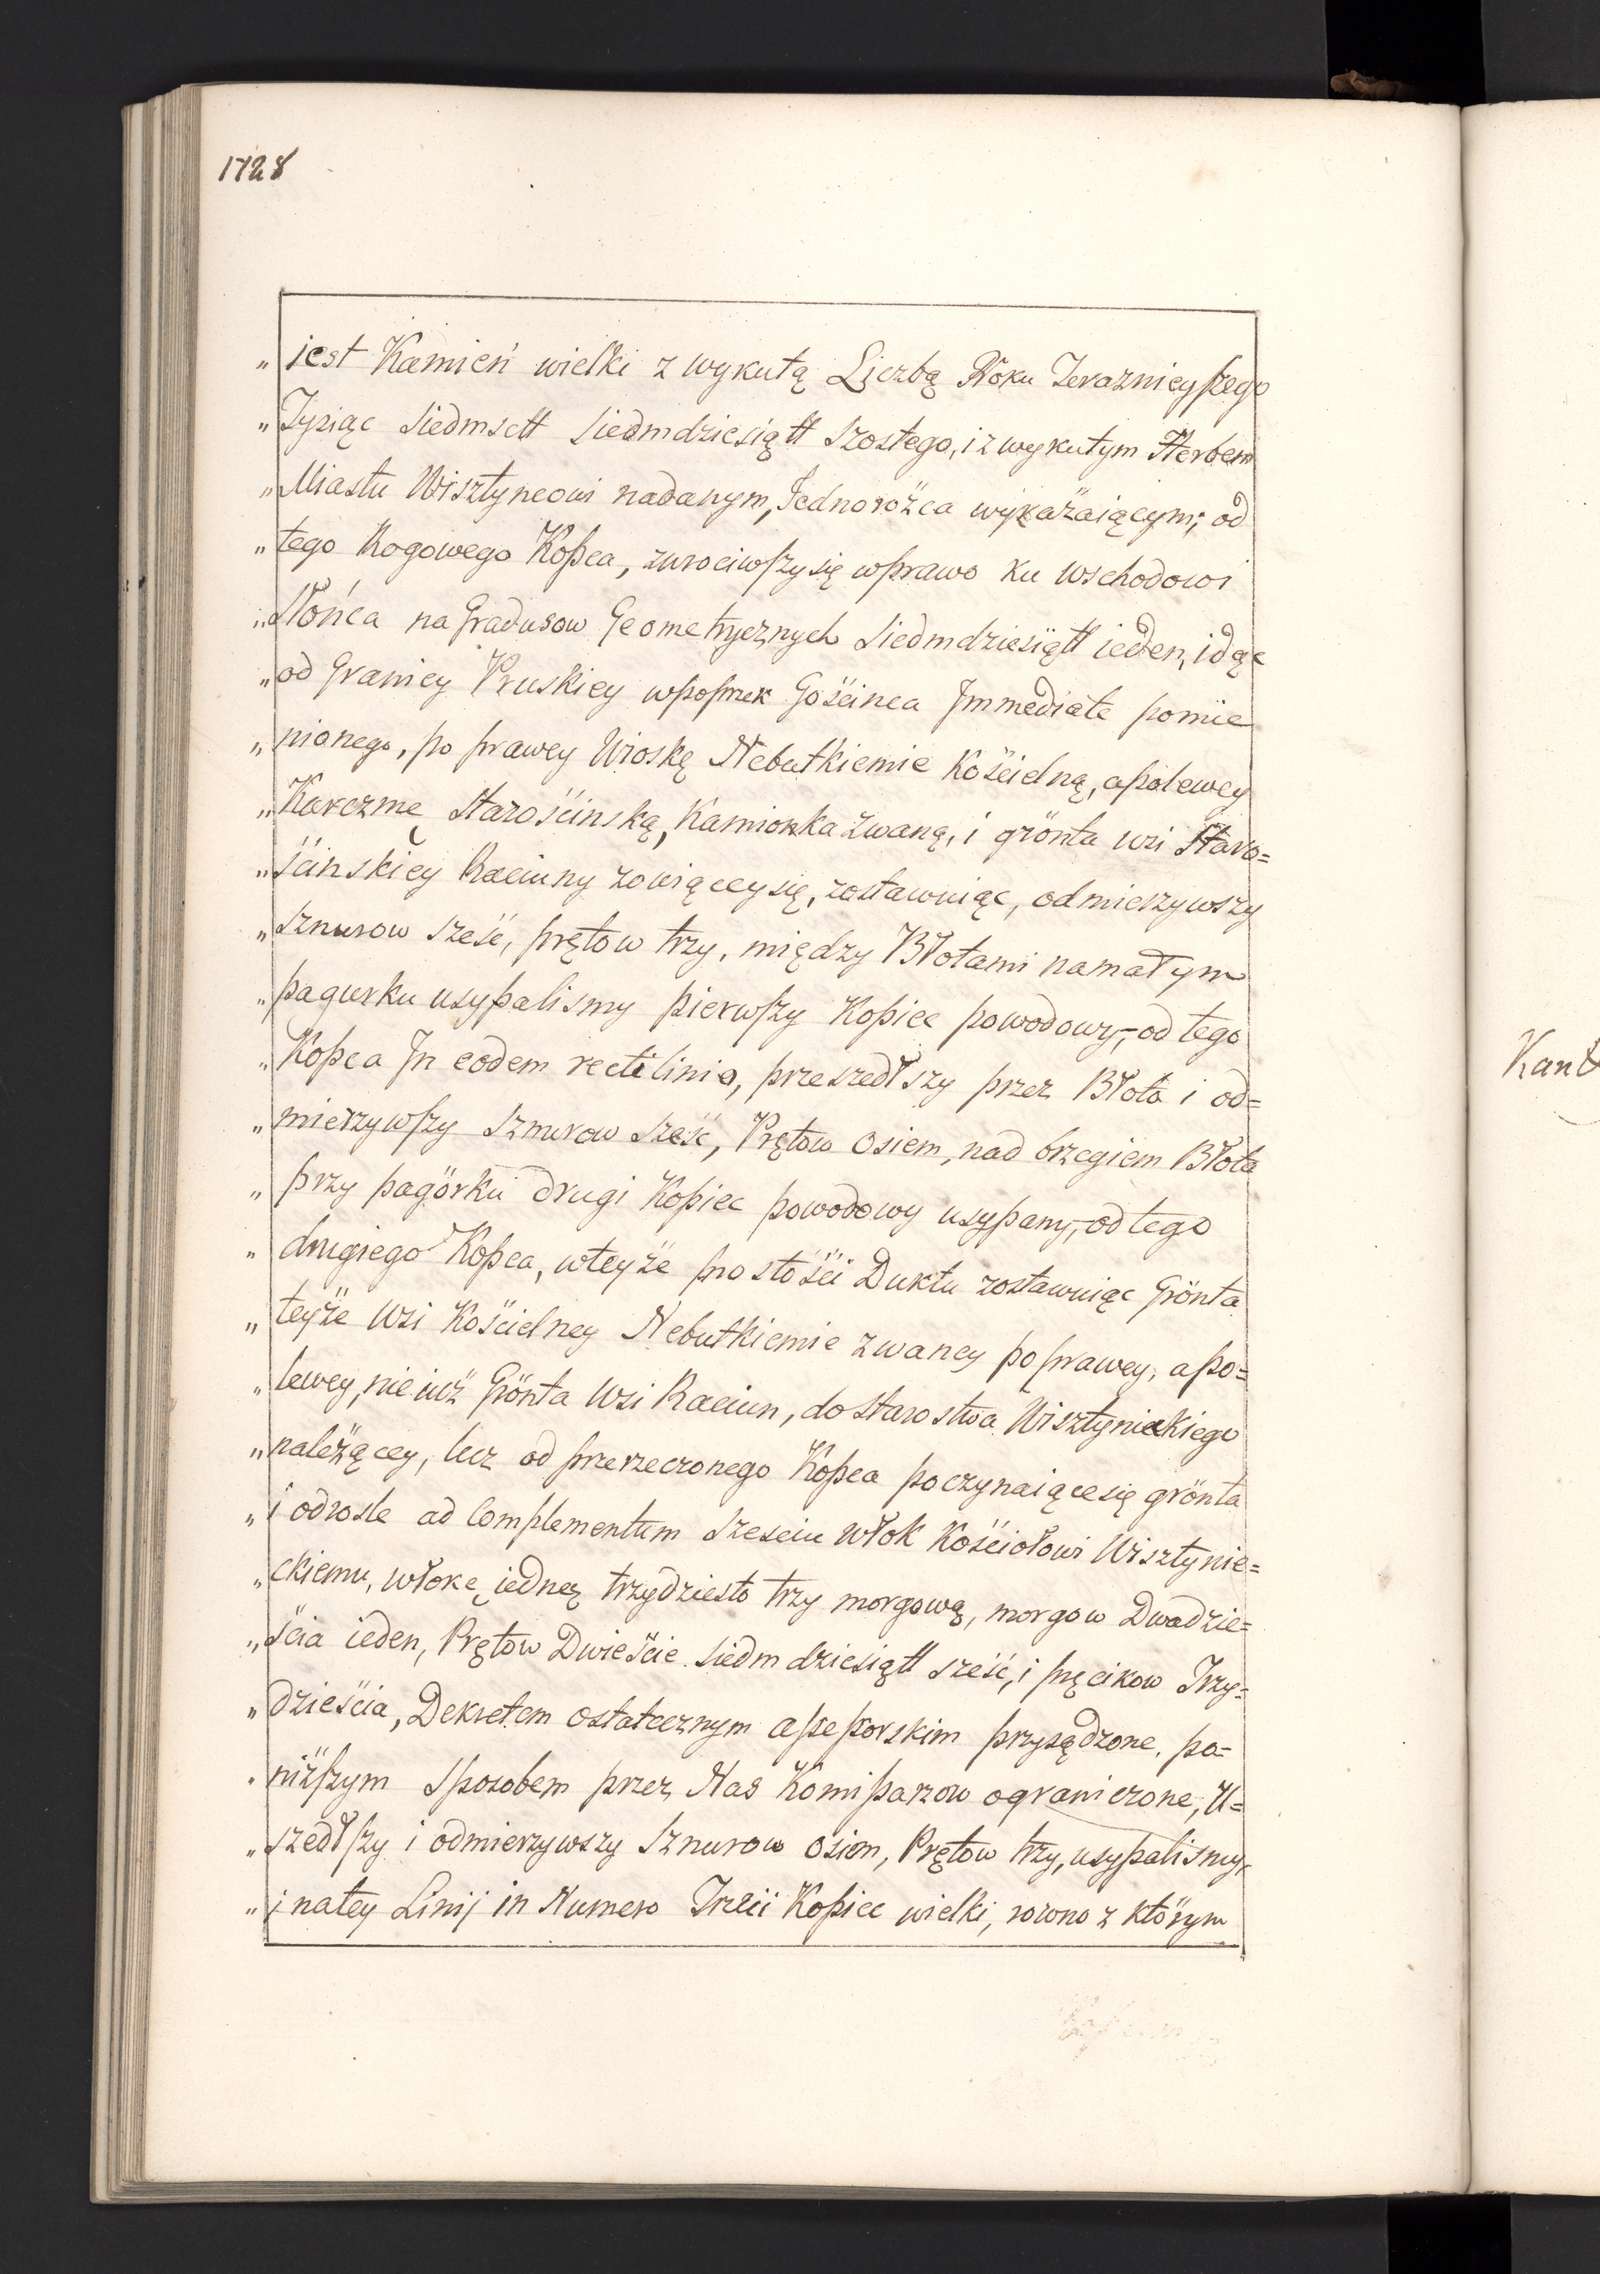 1728
„ iest Kamień wielki z wykutą Liczbą Roku Teraznieyszego
„ Tysiąc Siedmsett Siedmdziesiątt Szostego, i z wykutym Herbem
„ Miastu Wisztyncowi nadanym, Jednorożca wykażaiącym; od
„ tego Rogowego Kopca, zwrociwszy się wprawo ku wschodowi
„ Słońca na Gradusow Geometrycznych Siedmdziesiątt ieden, idąc
„ od Granicy Pruskiey wpoprzek Gościnca Immediate pomie
„ nionego, po prawey Wioskę Nebutkiemie Kościelną, apolewey
„ Karczmę Starościnską, Kamionka zwaną, i grönta wsi Staro=
„ ścinskiey Raciuny zowiąceysię, zostawuiąc, odmierzywszy
„ sznurow sześć, prętow trzy, między Błotami namałym
„ pagurku usypalismy pierwszy Kopiec powodowy,- od tego
„ Kopca In eodem rectilinio, przeszedłszy przez Błoto i od=
„ mierzywszy Sznurow Sześć, Prętow Osiem, nad brzegiem Błota
„ przy pagörku drugi Kopiec powodowy usypany,- od tego
„ drugiego Kopca, wteyże prostości Duktu zostawuiąc Grönta
„ teyże Wsi Kościelney Nebutkiemie zwaney poprawey, apo=
„ lewey, nie iuż Grönta Wsi Raciun, do Starostwa Wisztynieckiego
„ należącey, lecz od przerzeczonego Kopca poczynaiącesię grönta
„ i odrosle ad Complementum Szesciu Włok Kościołowi Wisztynie=
„ ckiemu, włokę iedną trzydziesto trzy morgową, morgow Dwadzie=
„ ścia ieden, Prętow Dwieście Siedmdziesiątt sześć, i pręcikow Trzy=
„ dzieścia, Dekretem ostatecznym assessorskim przysądzone, po=
„ niższym Sposobem przez Nas Komissarzow ograniczone, U=
„ szedłszy i odmierzywszy Sznurow osiem, Prętow trzy, usypalismy,
„ i natey Linij in Numero Trzeci Kopiec wielki, rowno z którym
Kant